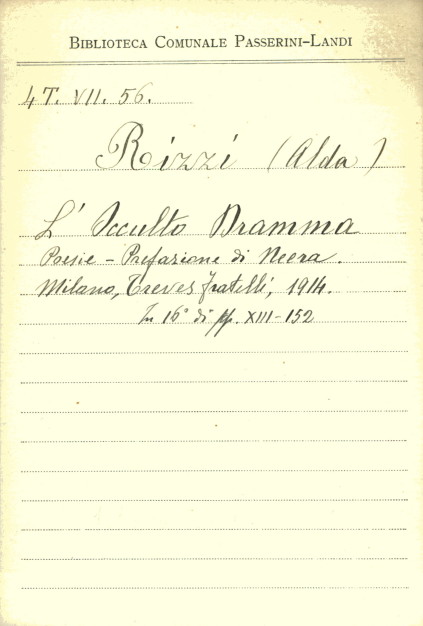 BIBLIOTECA COMUNALE PASSERINI-LANDI
4 T. VII. 56.
Rizzi (Alda)
L' Occulto Dramma
Poesie - Prefazione di Neera.
Milano, Treves fratelli, 1914.
In 16° di pp. XIII-152